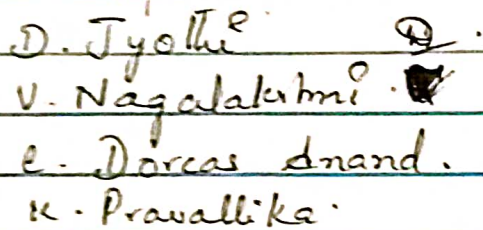 D. Jyothi
V. Nagalakshmi.
C. Dorcas Anand.
K. Pravallika.